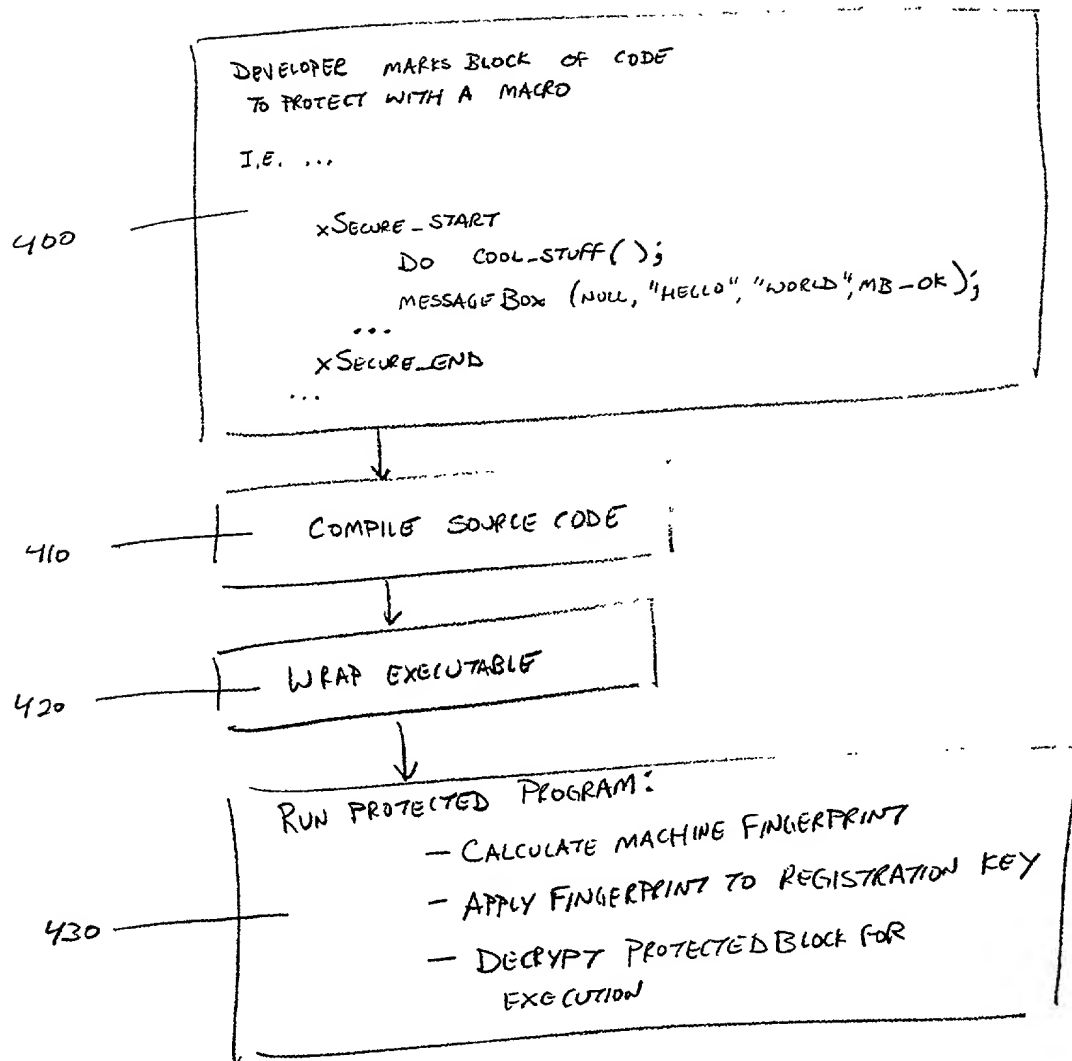 DEVELOPER MARKS BLOCK OF CODE
TO PROTECT WITH A MACRO
I.E. ...
400
xSECURE_START
DO COOL_STUFF();
MESSAGEBOX (NULL, "HELLO", "WORLD", MB_OK);
...
xSECURE_END
...
410
COMPILE SOURCE CODE
420
WRAP EXECUTABLE
430
RUN PROTECTED PROGRAM:
- CALCULATE MACHINE FINGERPRINT
- APPLY FINGERPRINT TO REGISTRATION KEY
- DECRYPT PROTECTED BLOCK FOR
EXECUTION